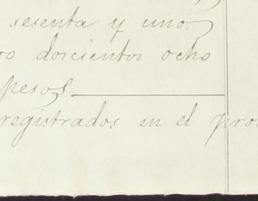 sesenta y uno.
ro doscientos ocho
pesos
registrados en el pro